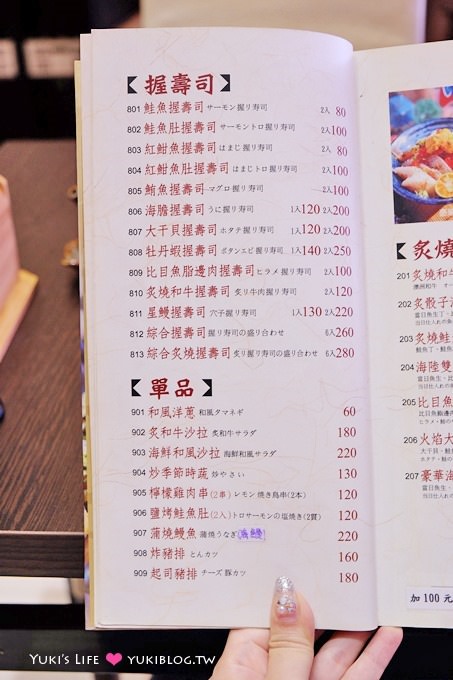 【握壽司】
801 鮭魚握壽司 サーモン握り寿司 2入 80
802 鮭魚肚握壽司 サーモントロ握り寿司 2入100
803 紅魽魚握壽司 はまじ握り寿司 2入 80
804 紅魽魚肚握壽司 はまじトロ握り寿司 2入100
805 鮪魚握壽司 マグロ握り寿司 2入100
806 海膽握壽司 うに握り寿司 1入120 2入200
807 大干貝握壽司 ホタテ握り寿司 1入120 2入200
808 牡丹蝦握壽司 ボタンエビ握り寿司 1入140 2入250
809 比目魚脂邊肉握壽司 ヒラメ握り寿司 2入100
810 炙燒和牛握壽司 炙り牛肉握り寿司 2入120
811 星鰻握壽司 穴子握り寿司 1入130 2入220
812 綜合握壽司 握り寿司の盛り合わせ 6入260
813 綜合炙燒握壽司 炙り握り寿司の盛り合わせ 6入280
【單品】
901 和風洋蔥 和風タマネギ 60
902 炙和牛沙拉 炙和牛サラダ 180
903 海鮮和風沙拉 海鮮和風サラダ 220
904 炒季節時蔬 炒やさい 130
905 檸檬雞肉串(2串) レモン焼き鳥串(2本) 120
906 鹽烤鮭魚肚(2入) トロサーモンの塩焼き(2質) 120
907 蒲燒鰻魚 蒲焼うなぎ 220
908 炸豬排 とんカツ 160
909 起司豬排 チーズ豚カツ 180
【炙燒
201 炙燒和牛
202 炙骰子
203 炙燒鮭
204 海陸雙
205 比目魚
206 火焰大
207 豪華海
加 100 元
YUKI'S LIFE YUKIBLOG.TW